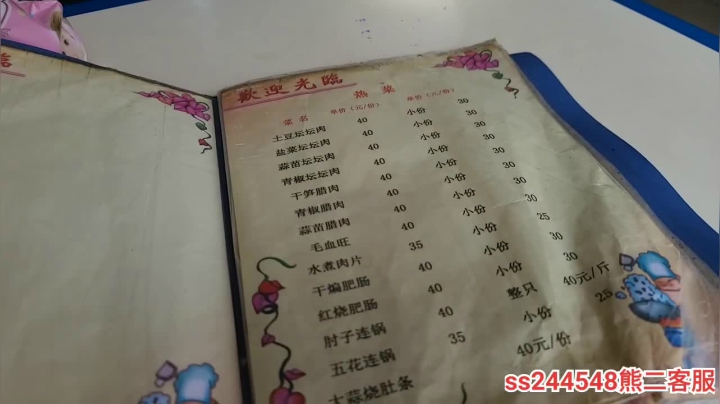 歡迎光臨
热菜
菜名 单价（元/份） 单价（元/份）
土豆坛坛肉 40 小份 30
盐菜坛坛肉 40 小份 30
蒜苗坛坛肉 40 小份 30
青椒坛坛肉 40 小份 30
干笋腊肉 40 小份 30
青椒腊肉 40 小份 30
蒜苗腊肉 40 小份 30
毛血旺 35 小份 25
水煮肉片 40 小份 30
干煸肥肠 40 小份 30
红烧肥肠 40 小份 30
肘子连锅 整只 40元/斤
五花连锅 35 小份 25
大蒜烧肚条 40元/份
ss244548熊二客服